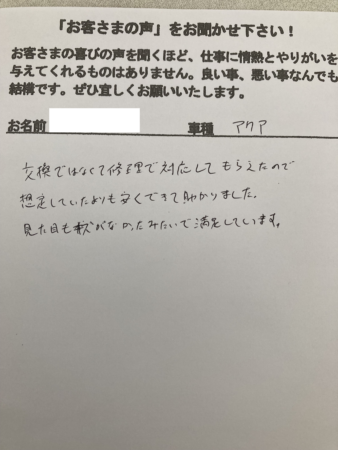 「お客さまの声」をお聞かせ下さい！
お客さまの喜びの声を聞くほど、仕事に情熱とやりがいを
与えてくれるものはありません。良い事、悪い事なんでも
結構です。ぜひ宜しくお願いいたします。
お名前 車種 アクア
交換ではなくて修理で対応してもらえたので
想定していたよりも安くできて助かりました。
見た目もキズがなかったみたいで満足しています。